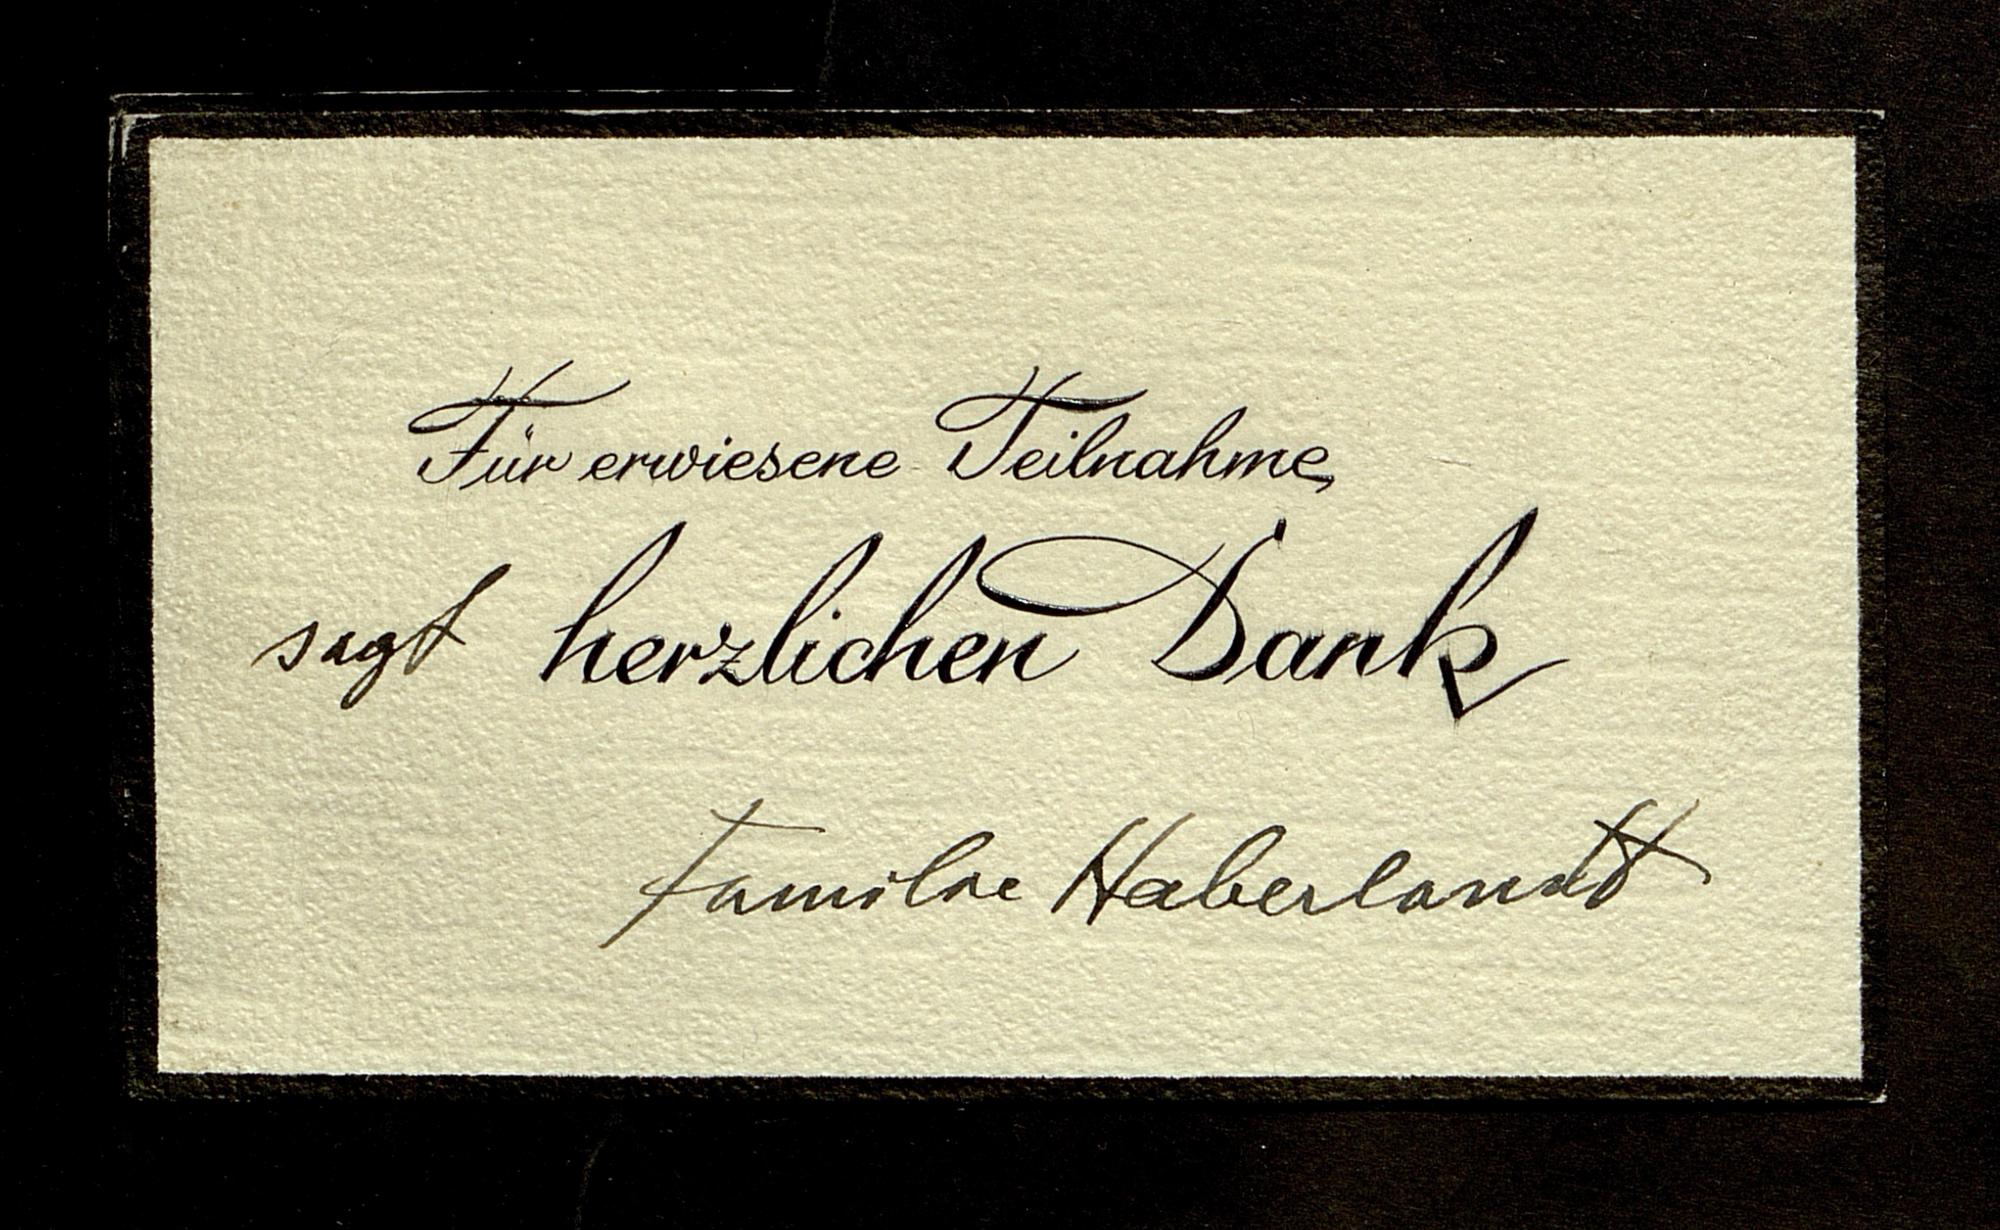 Für erwiesene Teilnahme,
sagt herzlichen Dank
Familie Haberlandt